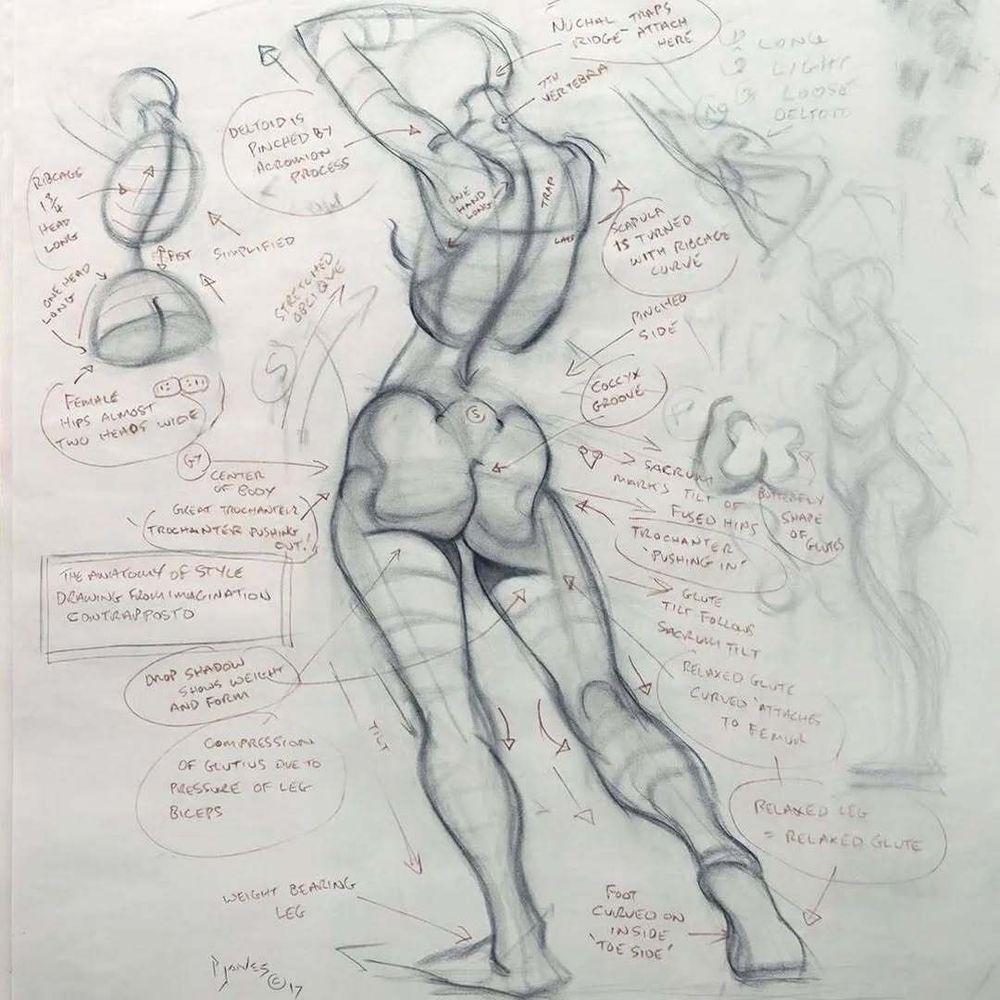 NUCHAL TRAPS
RIDGE - ATTACH
HERE
7TH
VERTEBRA
1) LONG
2) LIGHT
3) LOOSE
NO
DELTOID
DELTOID IS
PINCHED BY
ACROMION
PROCESS
RIBCAGE
1 3/4
HEAD
LONG
FIST
SIMPLIFIED
ONE HEAD
LONG
FEMALE
HIPS ALMOST
TWO HEADS WIDE
ONE
HAND
LONG
TRAP
LATS
SCAPULA
IS TURNED
WITH RIBCAGE
CURVE
STRETCHED
OBLIQUE
S
PINCHED
SIDE
COCCYX
GROOVE
S
P
GT
CENTER
OF BODY
GREAT TROCHANTER
TROCHANTER PUSHING
OUT!
SACRUM
MARKS TILT OF
FUSED HIPS
BUTTERFLY
SHAPE
OF
GLUTES
TROCHANTER
'PUSHING IN'
THE ANATOMY OF STYLE
DRAWING FROM IMAGINATION
CONTRAPPOSTO
GLUTE
TILT FOLLOWS
SACRUM TILT
DROP SHADOW
SHOWS WEIGHT
AND FORM
RELAXED GLUTE
CURVED 'ATTACHES
TO FEMUR
TILT
COMPRESSION
OF GLUTIUS DUE TO
PRESSURE OF LEG
BICEPS
RELAXED LEG
= RELAXED GLUTE
WEIGHT BEARING
LEG
FOOT
CURVED ON
INSIDE
'TOE SIDE'
PJONES
© 17